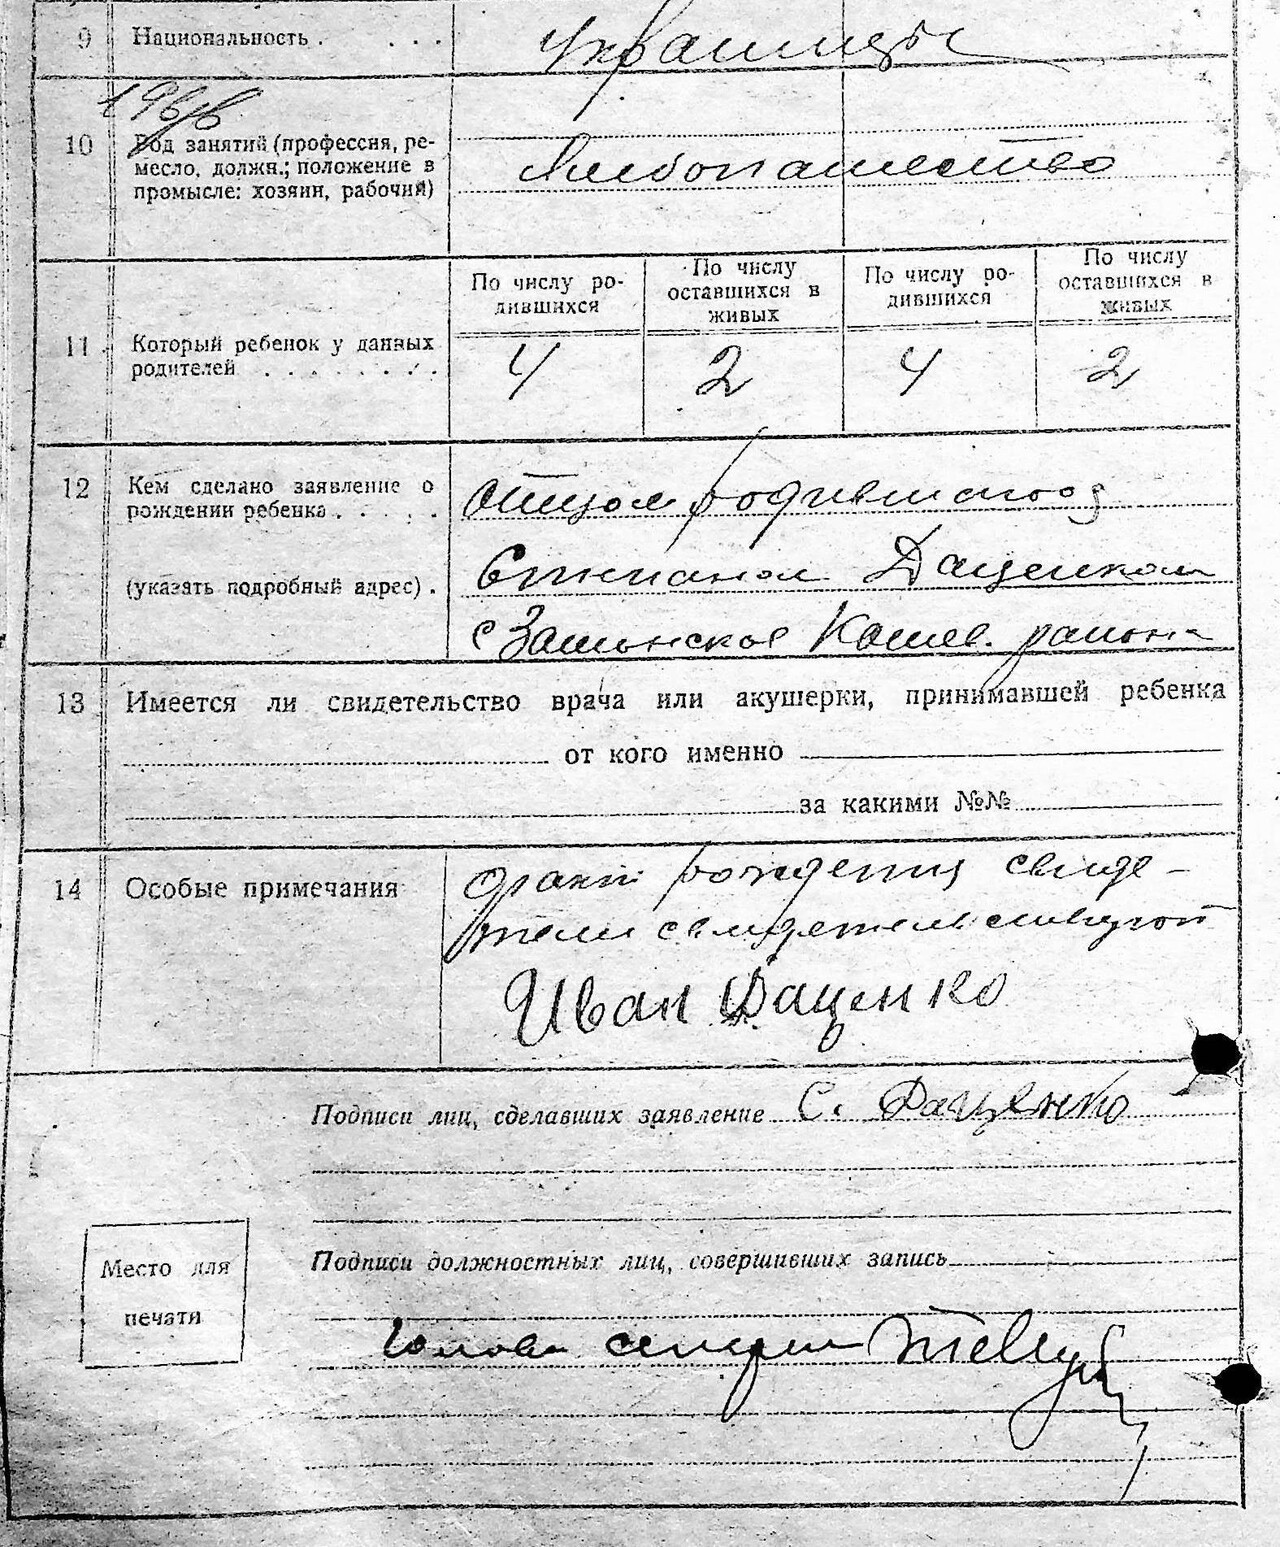 9 Национальность . . . . украинцы
10 Род занятий (профессия, ре-
месло, должн.; положение в
промысле: хозяин, рабочий)
Хлебопашество
По числу ро-
дившихся
По числу
оставшихся в
живых
По числу ро-
дившихся
По числу
оставшихся в
живых
11 Который ребенок у данных
родителей . . . . . . . .
4 2 4 2
12 Кем сделано заявление о
рождении ребенка . . . . .
(указать подробный адрес) .
Отцом родившагося
Степаном Даценком
с Кошев. района
13 Имеется ли свидетельство врача или акушерки, принимавшей ребенка
от кого именно
за какими №№
14 Особые примечания
Факт рождения свиде-
тели
Иван Даценко
Подписи лиц, сделавших заявление С. Даценко
Подписи должностных лиц, совершивших запись
Место для
печати
Голова